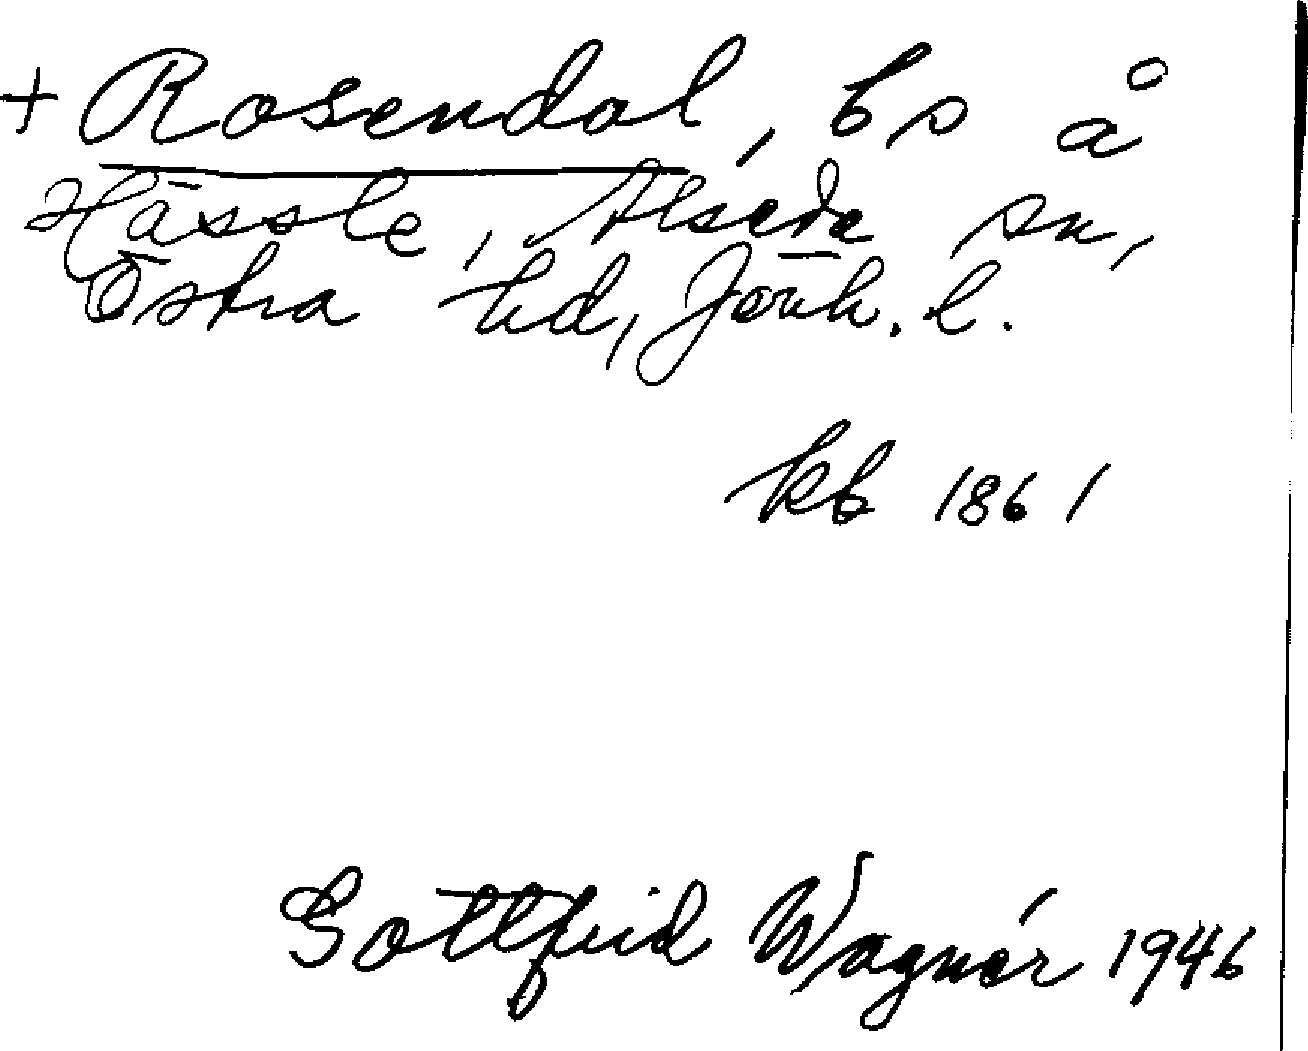 + Rosendal, bs å
Hässle, Alseda sn,
Östra hd, Jönk. l.
kb 1861
Gottfrid Wagnér 1946